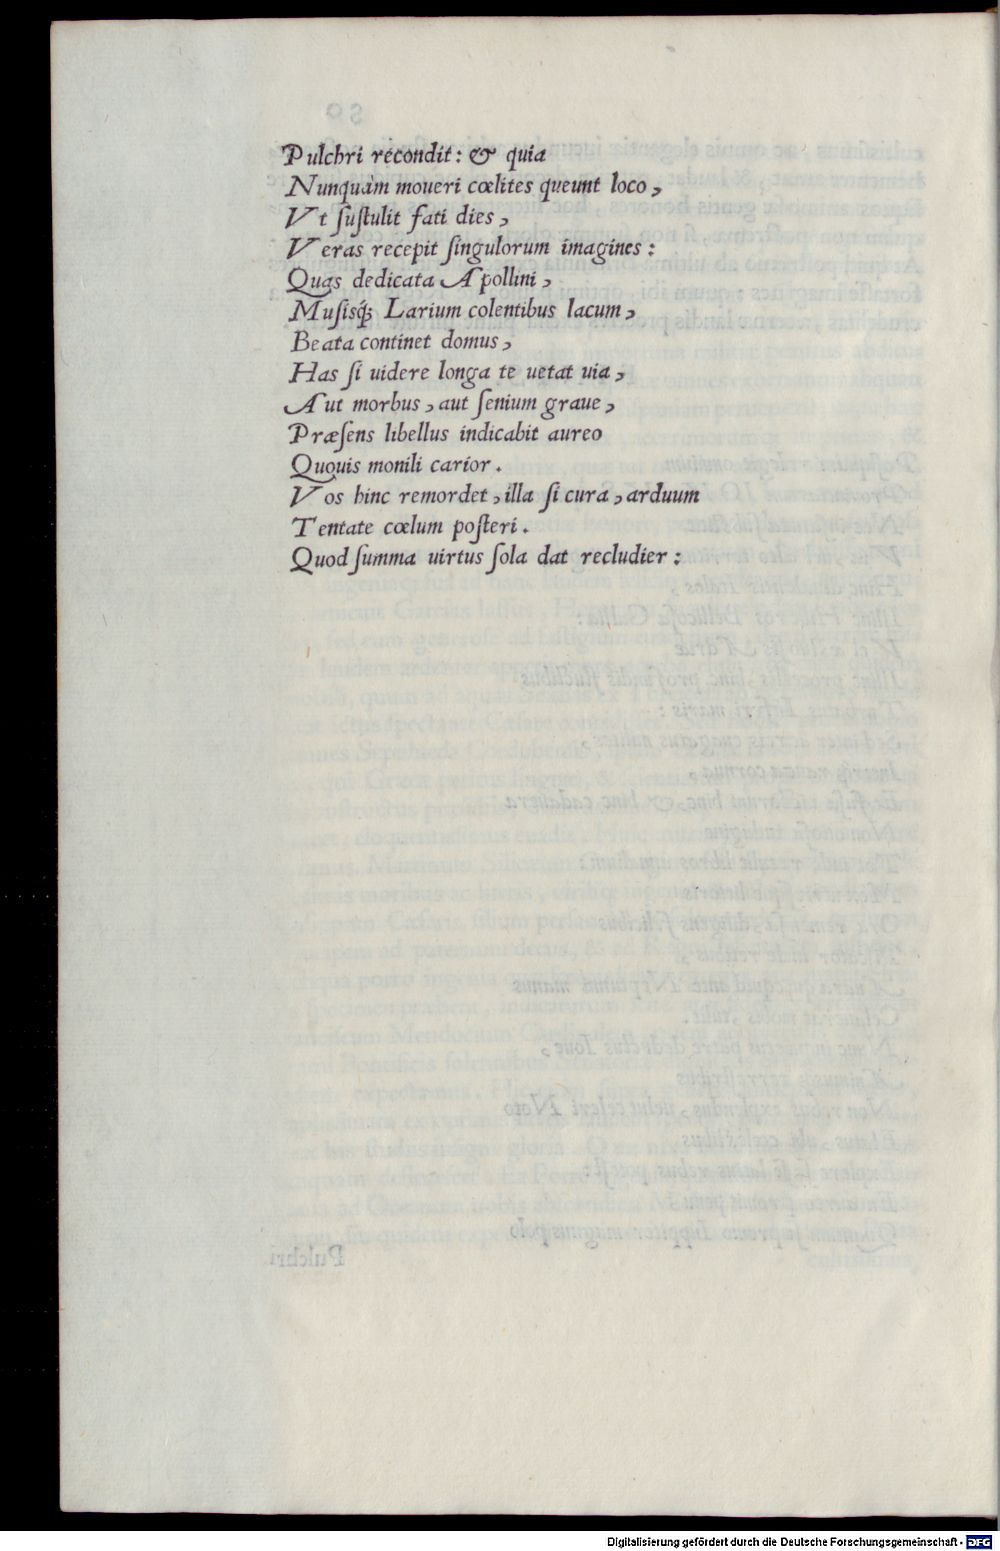 Pulchri recondit: & quia
Nunquàm moueri cœlites queunt loco,
Vt ſuſtulit fati dies,
Veras recepit ſingulorum imagines:
Quas dedicata Apollini,
Muſisq́; Larium colentibus lacum,
Beata continet domus,
Has ſi uidere longa te uetat uia,
Aut morbus, aut ſenium graue,
Præſens libellus indicabit aureo
Quouis monili carior.
Vos hinc remordet, illa ſi cura, arduum
Tentate cœlum poſteri.
Quod ſumma uirtus ſola dat recludier:
Digitalisierung gefördert durch die Deutsche Forschungsgemeinschaft - DFG